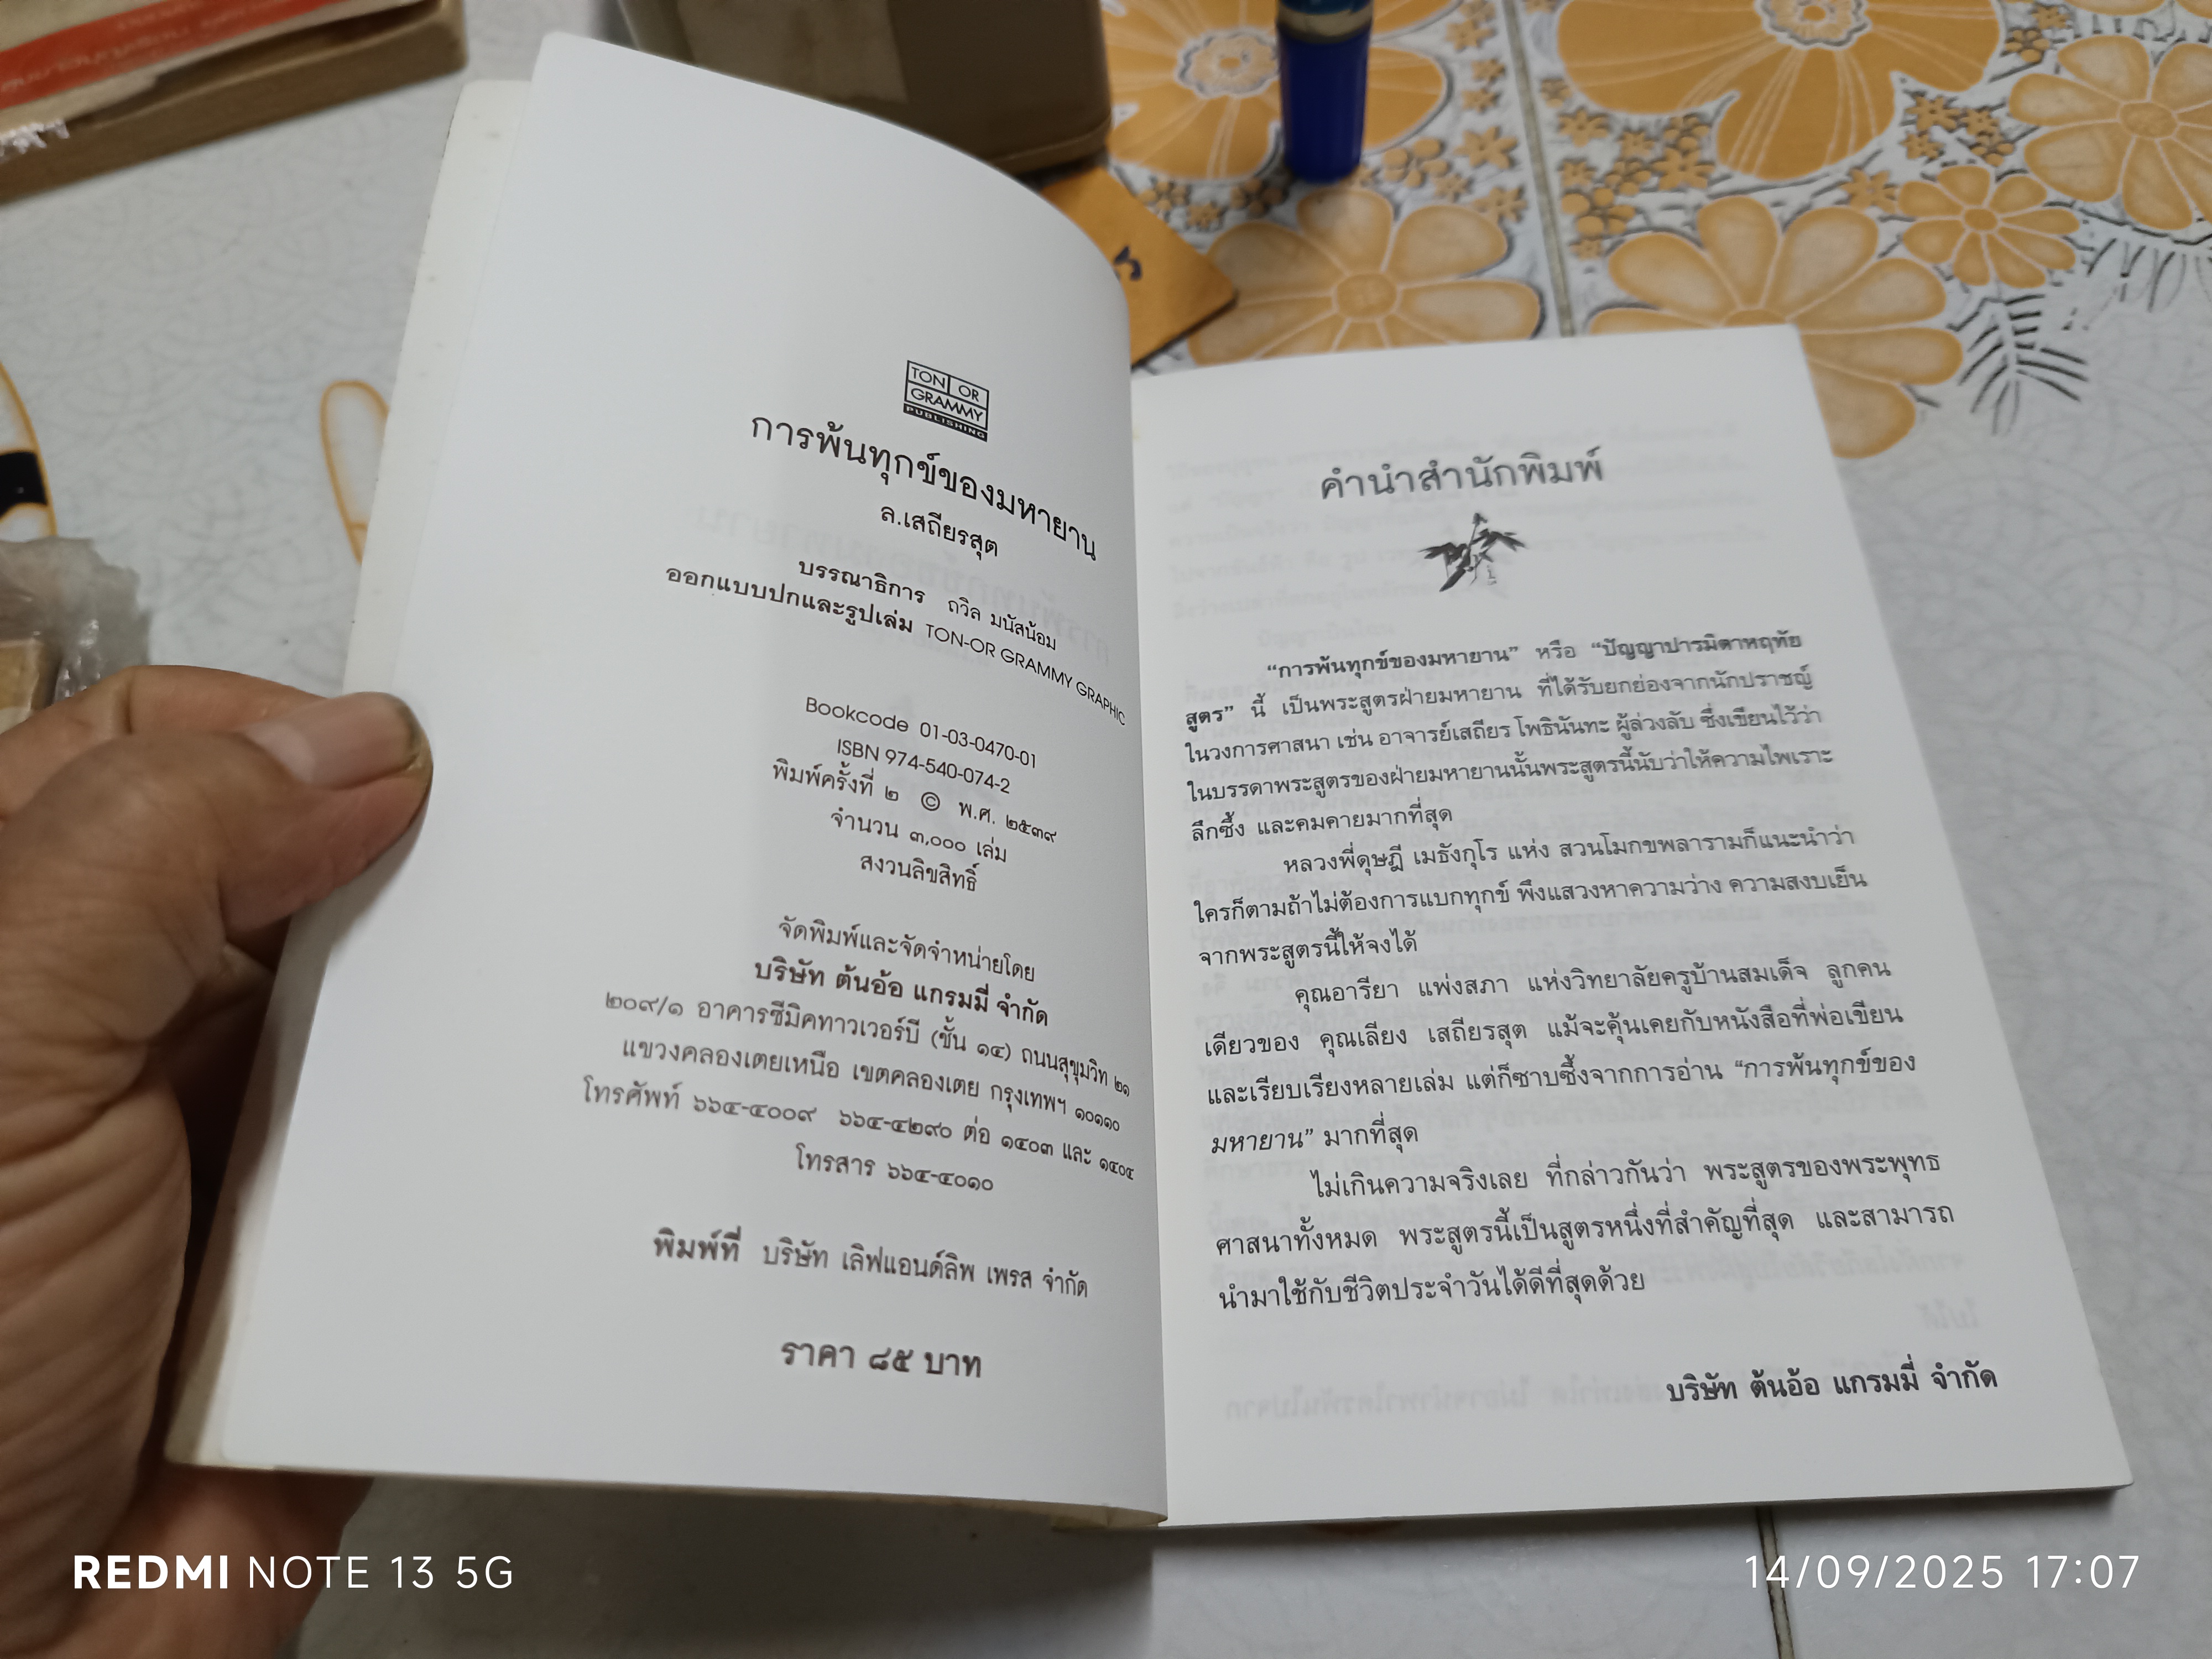 TON OR
GRAMMY
PUBLISHING
การพ้นทุกข์ของมหายาน
ล.เสถียรสุต
บรรณาธิการ ถวิล มนัสน้อม
ออกแบบปกและรูปเล่ม TON-OR GRAMMY GRAPHIC
Bookcode 01-03-0470-01
ISBN 974-540-074-2
พิมพ์ครั้งที่ ๒ © พ.ศ. ๒๕๓๙
จำนวน ๓,๐๐๐ เล่ม
สงวนลิขสิทธิ์
จัดพิมพ์และจัดจำหน่ายโดย
บริษัท ต้นอ้อ แกรมมี่ จำกัด
๒๐๙/๑ อาคารซีมิคทาวเวอร์บี (ชั้น ๑๔) ถนนสุขุมวิท ๒๑
แขวงคลองเตยเหนือ เขตคลองเตย กรุงเทพฯ ๑๐๑๑๐
โทรศัพท์ ๖๖๔-๔๐๐๙ ๖๖๔-๔๒๙๐ ต่อ ๑๔๐๓ และ ๑๔๐๔
โทรสาร ๖๖๔-๔๐๑๐
พิมพ์ที่ บริษัท เลิฟแอนด์ลิพ เพรส จำกัด
ราคา ๘๕ บาท
คำนำสำนักพิมพ์
“การพ้นทุกข์ของมหายาน” หรือ “ปัญญาปารมิตาหฤทัย
สูตร” นี้ เป็นพระสูตรฝ่ายมหายาน ที่ได้รับยกย่องจากนักปราชญ์
ในวงการศาสนา เช่น อาจารย์เสถียร โพธินันทะ ผู้ล่วงลับ ซึ่งเขียนไว้ว่า
ในบรรดาพระสูตรของฝ่ายมหายานนั้นพระสูตรนี้นับว่าให้ความไพเราะ
ลึกซึ้ง และคมคายมากที่สุด
หลวงพี่ดุษฎี เมธังกุโร แห่ง สวนโมกขพลารามก็แนะนำว่า
ใครก็ตามถ้าไม่ต้องการแบกทุกข์ พึงแสวงหาความว่าง ความสงบเย็น
จากพระสูตรนี้ให้จงได้
คุณอารียา แพ่งสภา แห่งวิทยาลัยครูบ้านสมเด็จ ลูกคน
เดียวของ คุณเลียง เสถียรสุต แม้จะคุ้นเคยกับหนังสือที่พ่อเขียน
และเรียบเรียงหลายเล่ม แต่ก็ซาบซึ้งจากการอ่าน “การพ้นทุกข์ของ
มหายาน” มากที่สุด
ไม่เกินความจริงเลย ที่กล่าวกันว่า พระสูตรของพระพุทธ
ศาสนาทั้งหมด พระสูตรนี้เป็นสูตรหนึ่งที่สำคัญที่สุด และสามารถ
นำมาใช้กับชีวิตประจำวันได้ดีที่สุดด้วย
บริษัท ต้นอ้อ แกรมมี่ จำกัด
REDMI NOTE 13 5G
14/09/2025 17:07